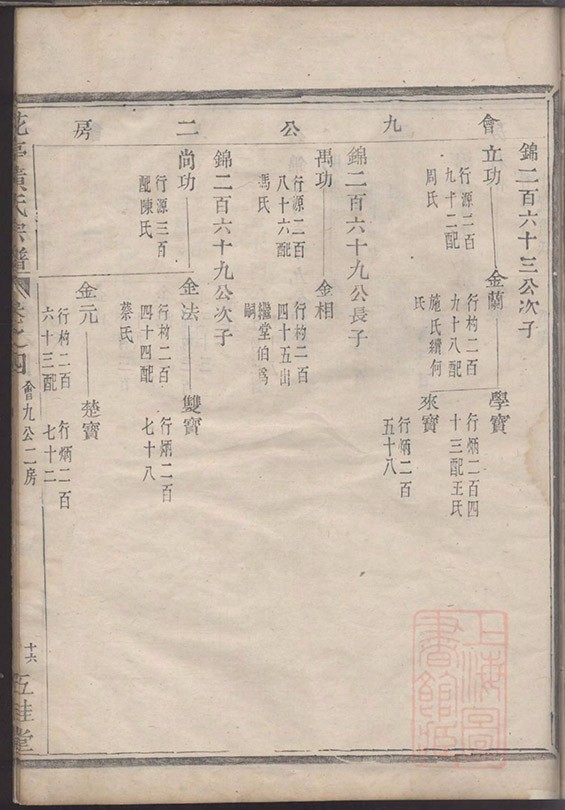 會九公二房
錦二百六十三公次子
立功
行源二百
九十二配
周氏
金蘭
行枃二百
九十八配
施氏續何
氏
學寶
行炳二百四
十三配王氏
來寶
行炳二百
五十八
錦二百六十九公長子
禹功
行源二百
八十六配
馮氏
金相
行枃二百
四十五出
繼堂伯爲
嗣
錦二百六十九公次子
尚功
行源三百
配陳氏
金法
行枃二百
四十四配
蔡氏
雙寶
行炳二百
七十八
金元
行枃二百
六十三配
楚寶
行炳二百
七十二
花亭黃氏宗譜
卷之四
會九公二房
十六
五桂堂
上海圖
書館藏